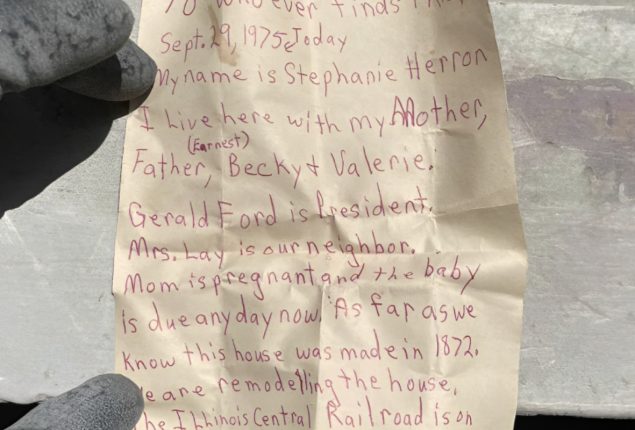 To who ever finds this
Sept. 29, 1975 Today
My name is Stephanie Herron
I Live here with my Mother,
(Earnest)
Father, Becky + Valerie.
Gerald Ford is President.
Mrs. Lay is our neighbor.
Mom is pregnant and the baby
is due any day now. As far as we
know this house was made in 1872.
We are remodelling the house.
The Illinois Central Railroad is on